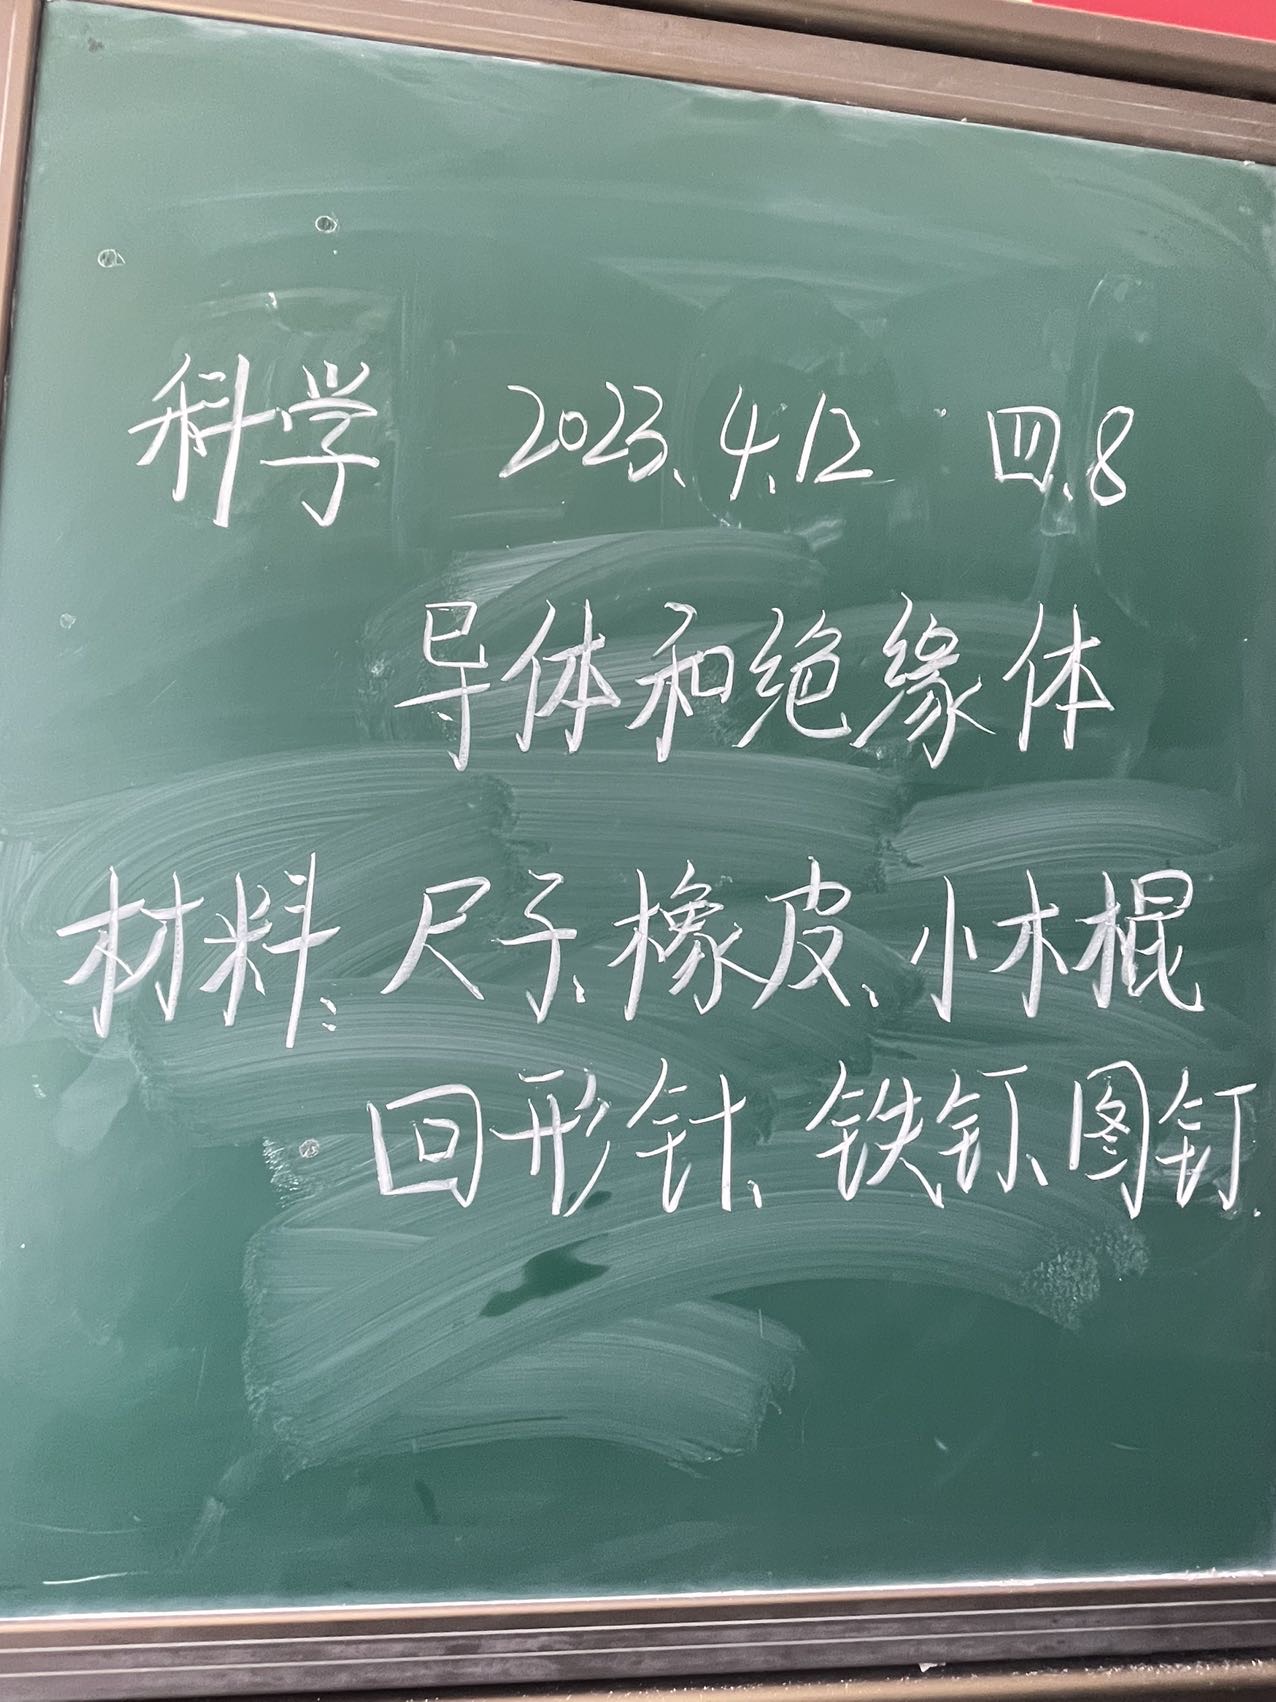 科学 2023.4.12 四.8
导体和绝缘体
材料:尺子、橡皮、小木棍
回形针、铁钉、图钉.